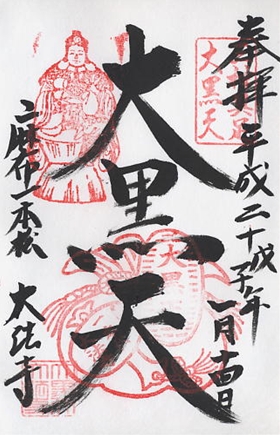 奉拝 平成二十戊子年 一月
大黒天
大黒天
元麻布一本松 大法寺
大